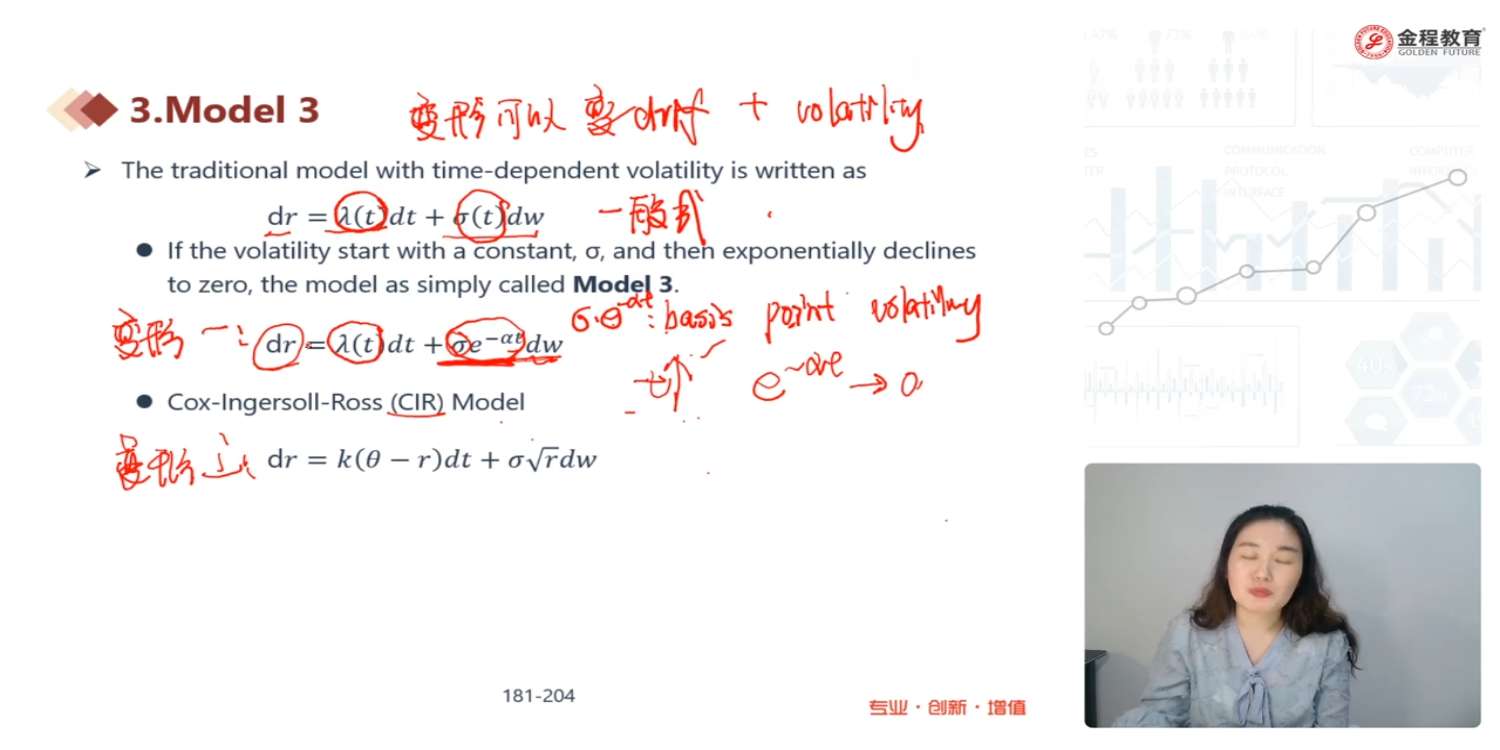 金程教育
GOLDEN FUTURE
3.Model 3
变形可以变drift + volatility
➤ The traditional model with time-dependent volatility is written as
dr = λ(t)dt + σ(t)dw 一般式
● If the volatility start with a constant, σ, and then exponentially declines
to zero, the model as simply called Model 3.
σ·e^-αt: basis point volatility
变形一: dr = λ(t)dt + σe^−αt dw
t↑ e^-αt → 0
● Cox-Ingersoll-Ross (CIR) Model
变形二: dr = k(θ − r)dt + σ√r dw
181-204
专业·创新·增值